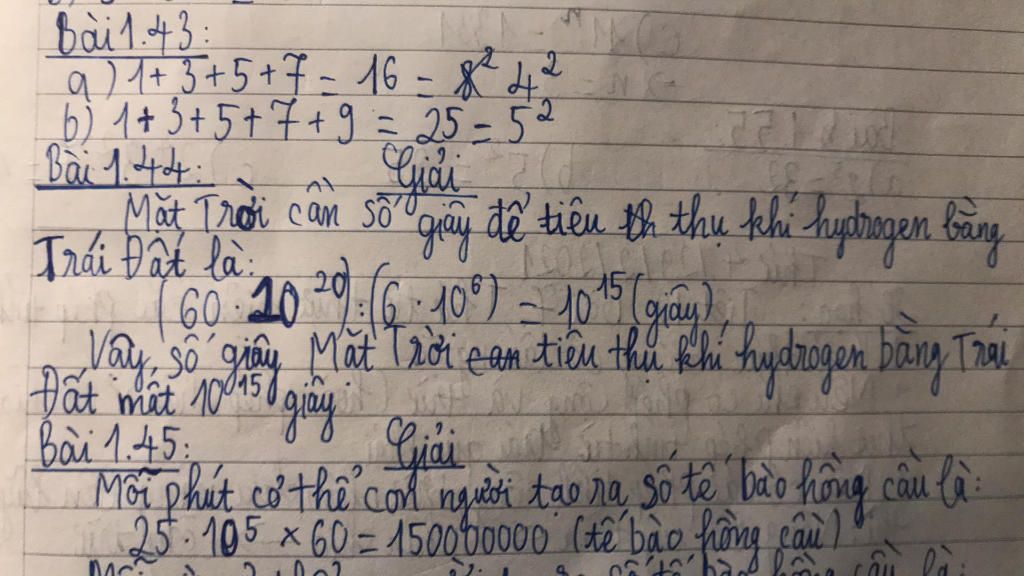 Bài 1.43:
a) 1+3+5+7 = 16 = 4²
b) 1+3+5+7+9 = 25 = 5²
Bài 1.44: Giải
Mặt Trời cần số giây để tiêu thụ khí hydrogen bằng
Trái Đất là:
(60 · 10²⁰) : (6 · 10⁶) = 10¹⁵ (giây)
Vậy, số giây Mặt Trời tiêu thụ khí hydrogen bằng Trái
Đất mất 10¹⁵ giây
Bài 1.45: Giải
Mỗi phút cơ thể con người tạo ra số tế bào hồng cầu là:
25 · 10⁵ × 60 = 150000000 (tế bào hồng cầu)